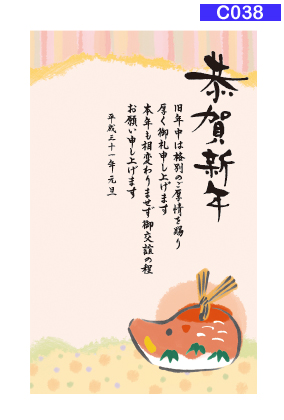 C038
恭賀新年
旧年中は格別のご厚情を賜り
厚く御礼申し上げます
本年も相変わりませず御交誼の程
お願い申し上げます
平成三十一年元旦